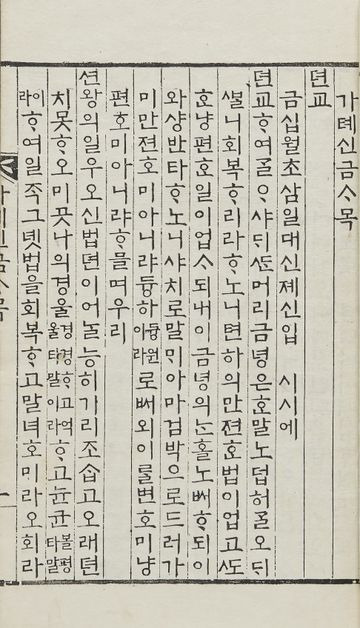 가톄신금ᄉᆞ목
뎐교
금십월초삼일대신졔신입 시시에
뎐교ᄒᆞ여ᄀᆞᆯᄋᆞ샤ᄃᆡᄯᅡᆫ머리금녕은호말노덥허ᄀᆞᆯ오ᄃᆡ
ᄲᆞᆯ니회복ᄒᆞ리라ᄒᆞ노니텬하의만젼호법이업고ᄯᅩ
호냥편호일이업ᄉᆞ되내이금녕의ᄂᆞᆫ홀노ᄡᅥᄒᆞ되이
와샹반타ᄒᆞ노니샤치로말ᄆᆡ아마검박으로드러가
미만젼호미아니랴듕하듕원이라로ᄡᅥ외이ᄅᆞᆯ변호미냥
편호미아니랴ᄒᆞ믈며우리
션왕의일우오신법뎐이어ᄂᆞᆯ능히가리조ᄉᆞᆸ고오래뎐
치못ᄒᆞ오미ᄭᅳᆺ나의경울경경ᄒᆞ고울억타말이라ᄒᆞ고균볼평타말
이라ᄒᆞ여일죽그녯법을회복ᄒᆞ고말녀호미라오회라